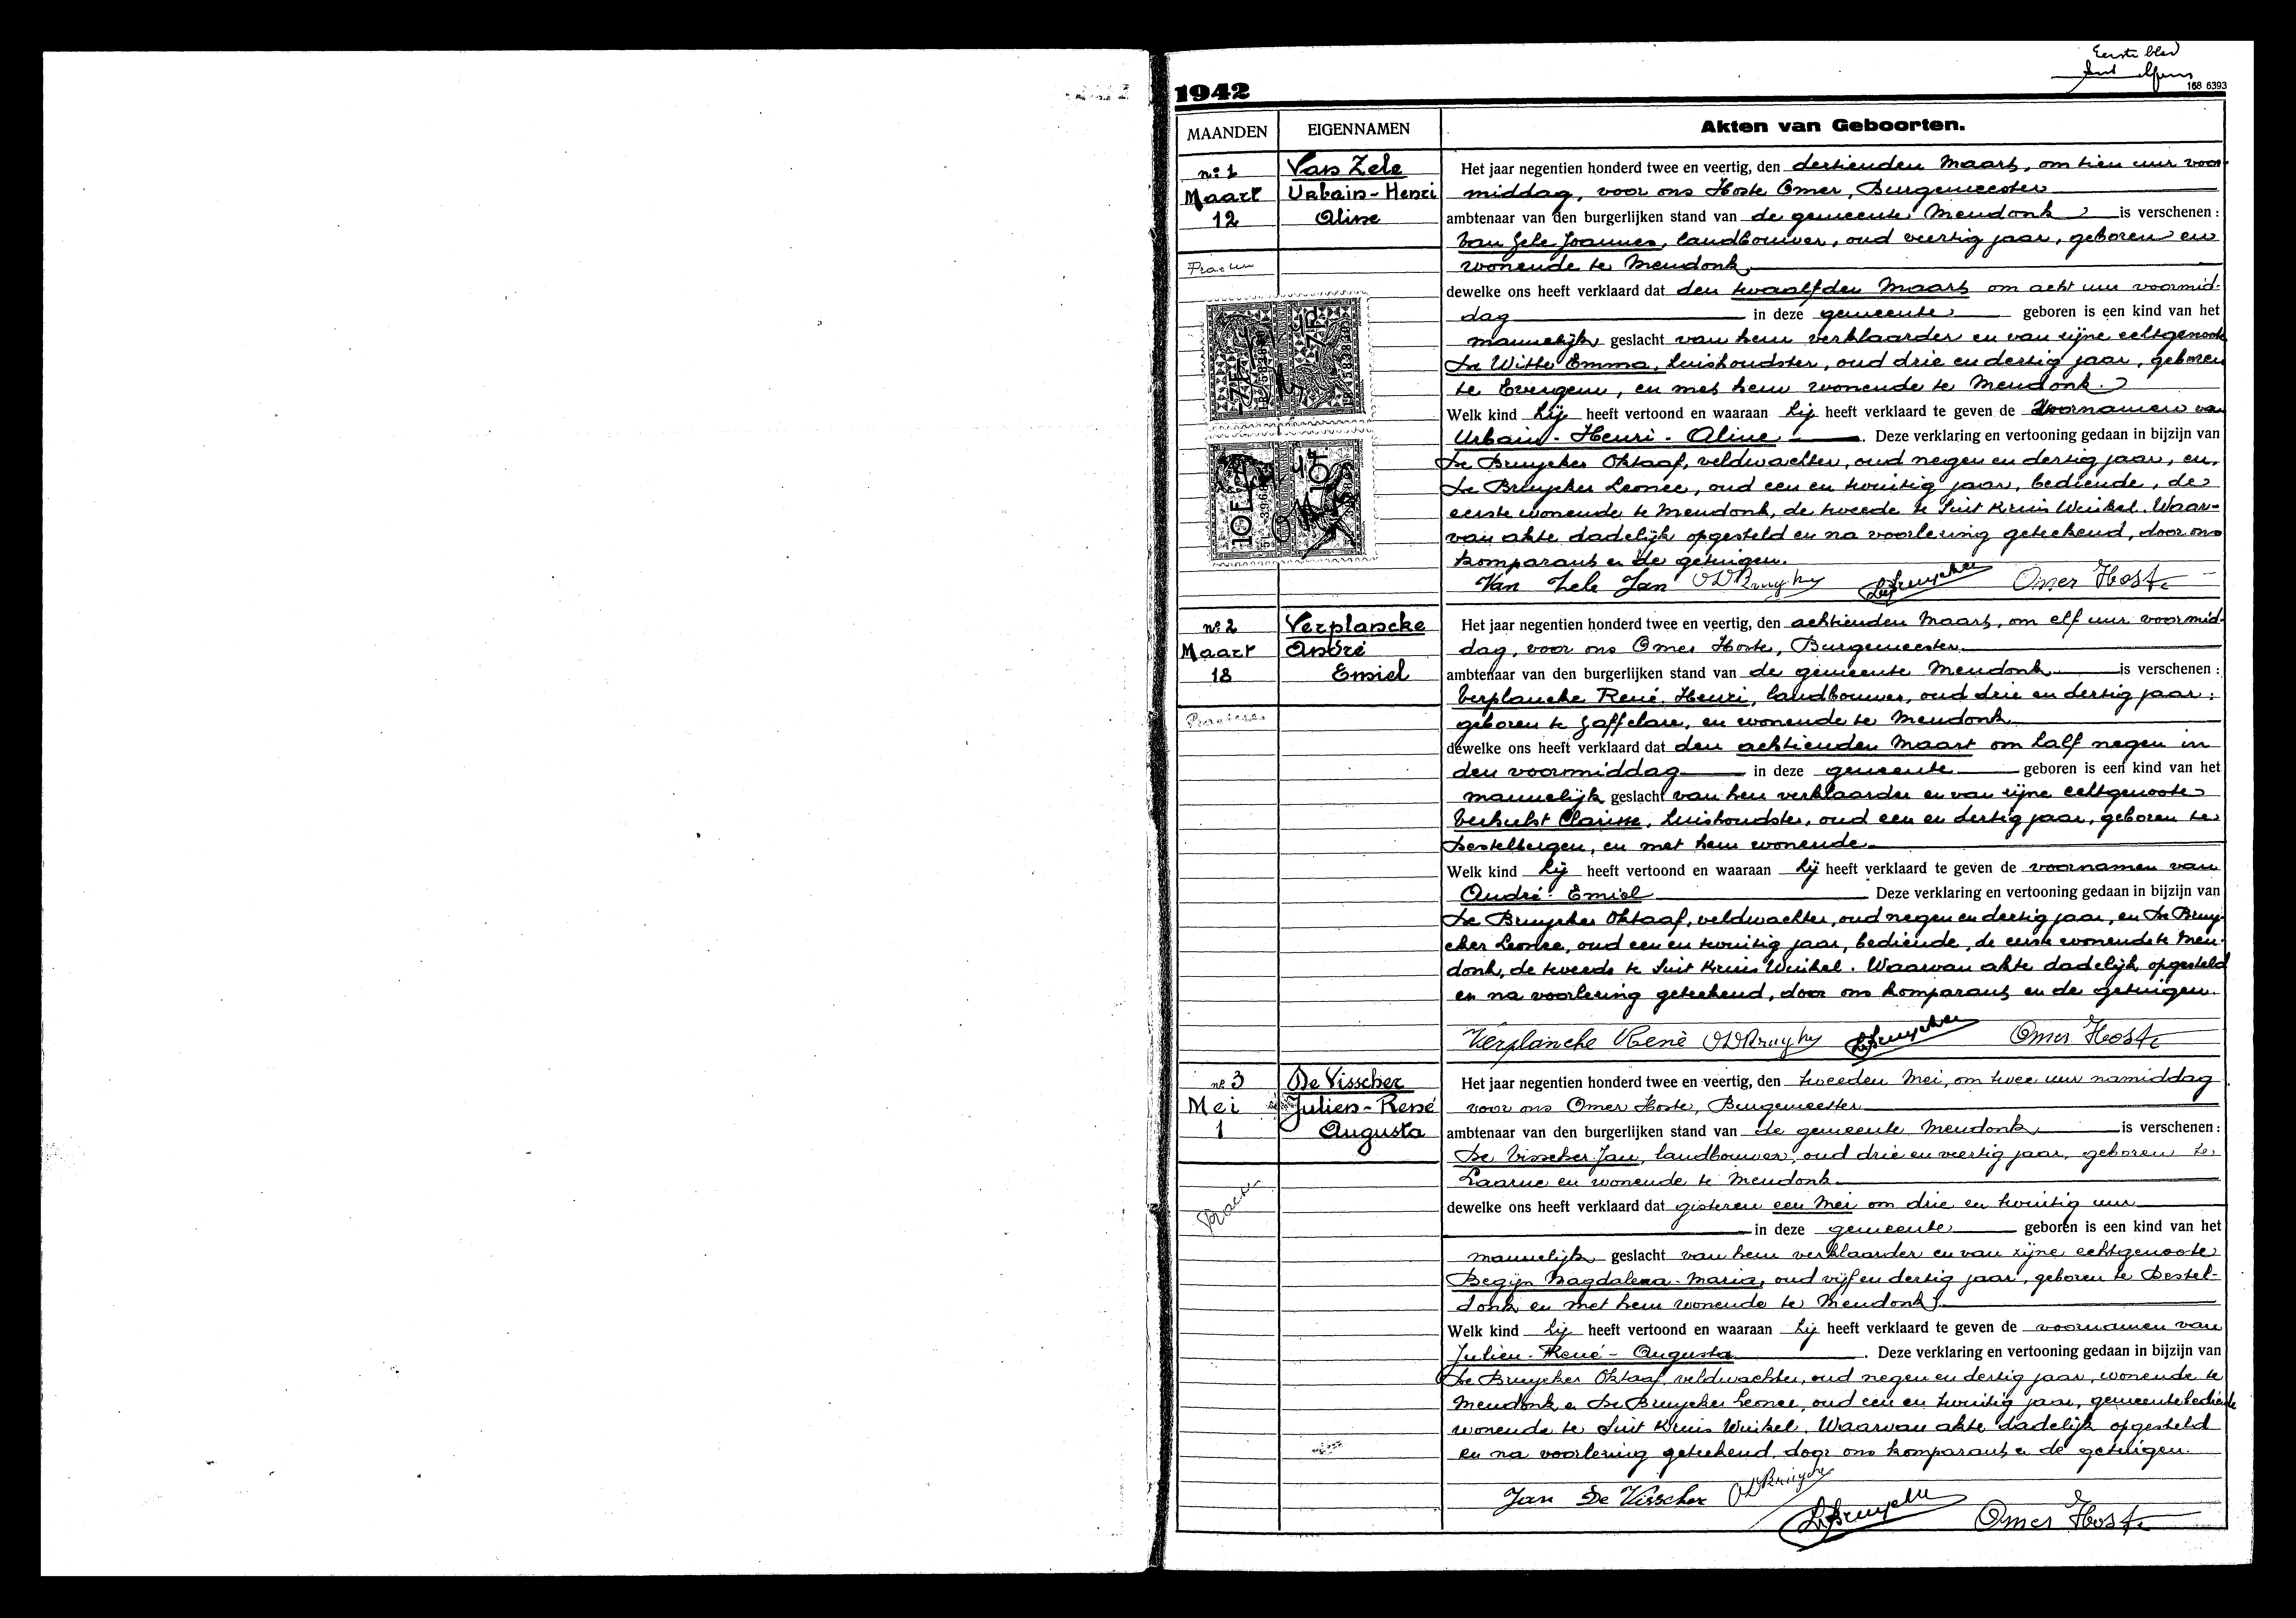 Eerste blad
168 6393
1942
MAANDEN EIGENNAMEN Akten van Geboorten.
nº 1
Maart
12
Van Zele
Urbain-Henri
Aline
Het jaar negentien honderd twee en veertig, den dertienden Maart, om tien uur voor-
middag, voor ons Hoste Omer, Burgemeester
ambtenaar van den burgerlijken stand van de gemeente Mendonk is verschenen :
Van Zele Joannes, landbouwer, oud veertig jaar, geboren en
wonende te Mendonk
dewelke ons heeft verklaard dat den twaalfden Maart om acht uur voormid-
dag in deze gemeente geboren is een kind van het
mannelijk geslacht van hem verklaarder en van zijne echtgenoote
De Witte Emma, huishoudster, oud drie en dertig jaar, geboren
te Evergem, en met hem wonende te Mendonk.
Welk kind hij heeft vertoond en waaraan hij heeft verklaard te geven de voornamen van
Urbain - Henri - Aline . Deze verklaring en vertooning gedaan in bijzijn van
De Bruycker Oktaaf, veldwachter, oud negen en dertig jaar, en,
De Bruycker Leonce, oud een en twintig jaar, bediende, de
eerste wonende te Mendonk, de tweede te Sint Kruis Winkel. Waar-
van akte dadelijk opgesteld en na voorlezing geteekend, door ons
komparant en de getuigen.
Van Zele Jan ODBruycker LDeBruycker Omer Hoste
7F 7F
10F 10F
nº 2
Maart
18
Verplancke
André
Emiel
Het jaar negentien honderd twee en veertig, den achtienden Maart, om elf uur voormid-
dag, voor ons Omer Hoste, Burgemeester
ambtenaar van den burgerlijken stand van de gemeente Mendonk is verschenen :
Verplancke René Henri, landbouwer, oud drie en dertig jaar,
geboren te Zaffelare, en wonende te Mendonk
dewelke ons heeft verklaard dat den achtienden Maart om half negen in
den voormiddag in deze gemeente geboren is een kind van het
mannelijk geslacht van hem verklaarder en van zijne echtgenoote
Verhulst Clarisse, huishoudster, oud een en dertig jaar, geboren te
Destelbergen, en met hem wonende.
Welk kind hij heeft vertoond en waaraan hij heeft verklaard te geven de voornamen van
André - Emiel Deze verklaring en vertooning gedaan in bijzijn van
De Bruycker Oktaaf, veldwachter, oud negen en dertig jaar, en De Bruy-
cker Leonce, oud een en twintig jaar, bediende, de eerste wonende te Men-
donk, de tweede te Sint Kruis Winkel. Waarvan akte dadelijk opgesteld
en na voorlezing geteekend, door ons komparant en de getuigen.
Verplancke René ODBruycker LDeBruycker Omer Hoste
nº 3
Mei
1
De Visscher
Julien-René
Augusta
Het jaar negentien honderd twee en veertig, den tweeden Mei, om twee uur namiddag
voor ons Omer Hoste, Burgemeester
ambtenaar van den burgerlijken stand van de gemeente Mendonk is verschenen :
De Visscher Jan, landbouwer, oud drie en veertig jaar, geboren te
Laarne en wonende te Mendonk.
dewelke ons heeft verklaard dat gisteren een Mei om drie en twintig uur
in deze gemeente geboren is een kind van het
mannelijk geslacht van hem verklaarder en van zijne echtgenoote
Begijn Magdalena-Maria, oud vijf en dertig jaar, geboren te Destel-
donk en met hem wonende te Mendonk.
Welk kind hij heeft vertoond en waaraan hij heeft verklaard te geven de voornamen van
Julien-René-Augusta . Deze verklaring en vertooning gedaan in bijzijn van
De Bruycker Oktaaf, veldwachter, oud negen en dertig jaar, wonende te
Mendonk en De Bruycker Leonce, oud een en twintig jaar, gemeentebediende
wonende te Sint Kruis Winkel. Waarvan akte dadelijk opgesteld
en na voorlezing geteekend, door ons komparant en de getuigen.
Jan De Visscher ODBruycker
LDeBruycker Omer Hoste